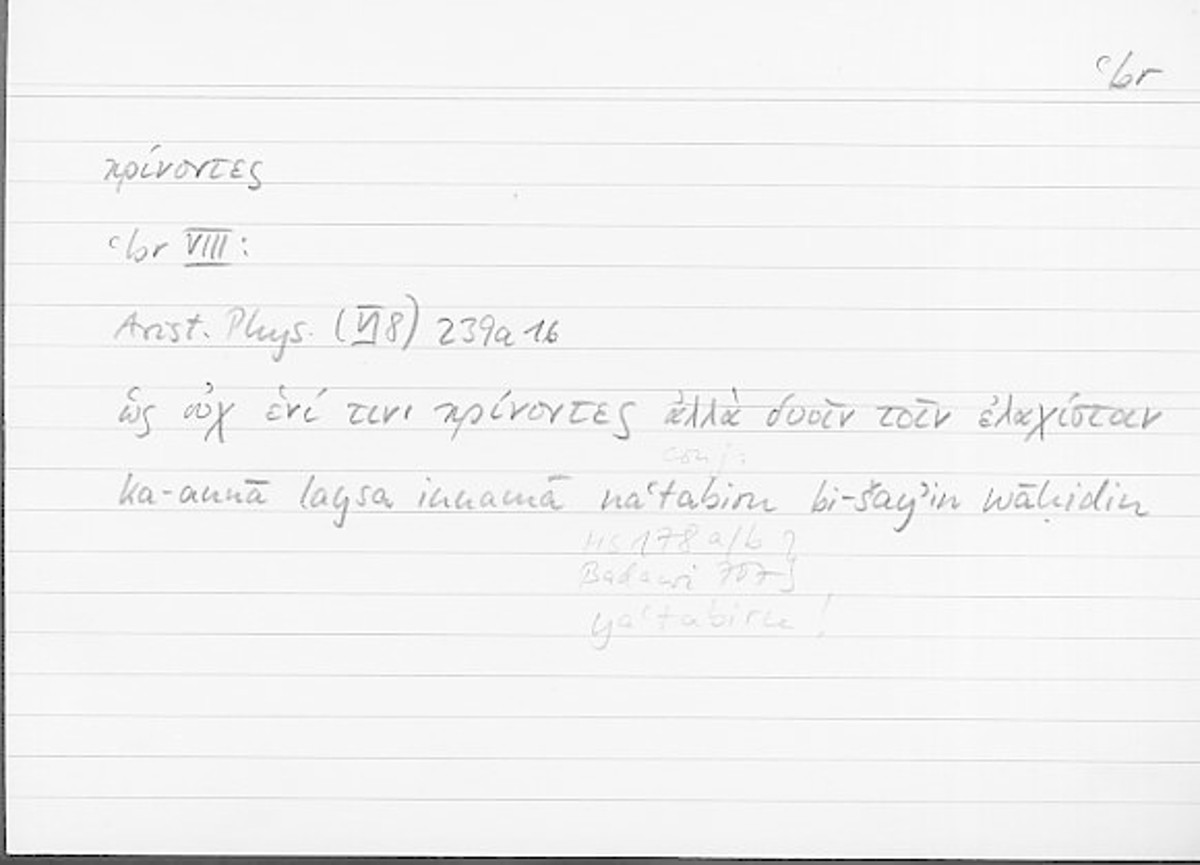 ʿbr
κρίνοντες
ʿbr VIII:
Arist. Phys. (VI 8) 239a 16
ὡς οὐχ ἑνί τινι κρίνοντες ἀλλὰ δυοῖν τοῖν ἐλαχίστοιν
conj.
ka-annā laysa innamā naʿtabiru bi-šayʾin wāḥidin
HS 178 a/b
Badawi 707
yaʿtabiru!